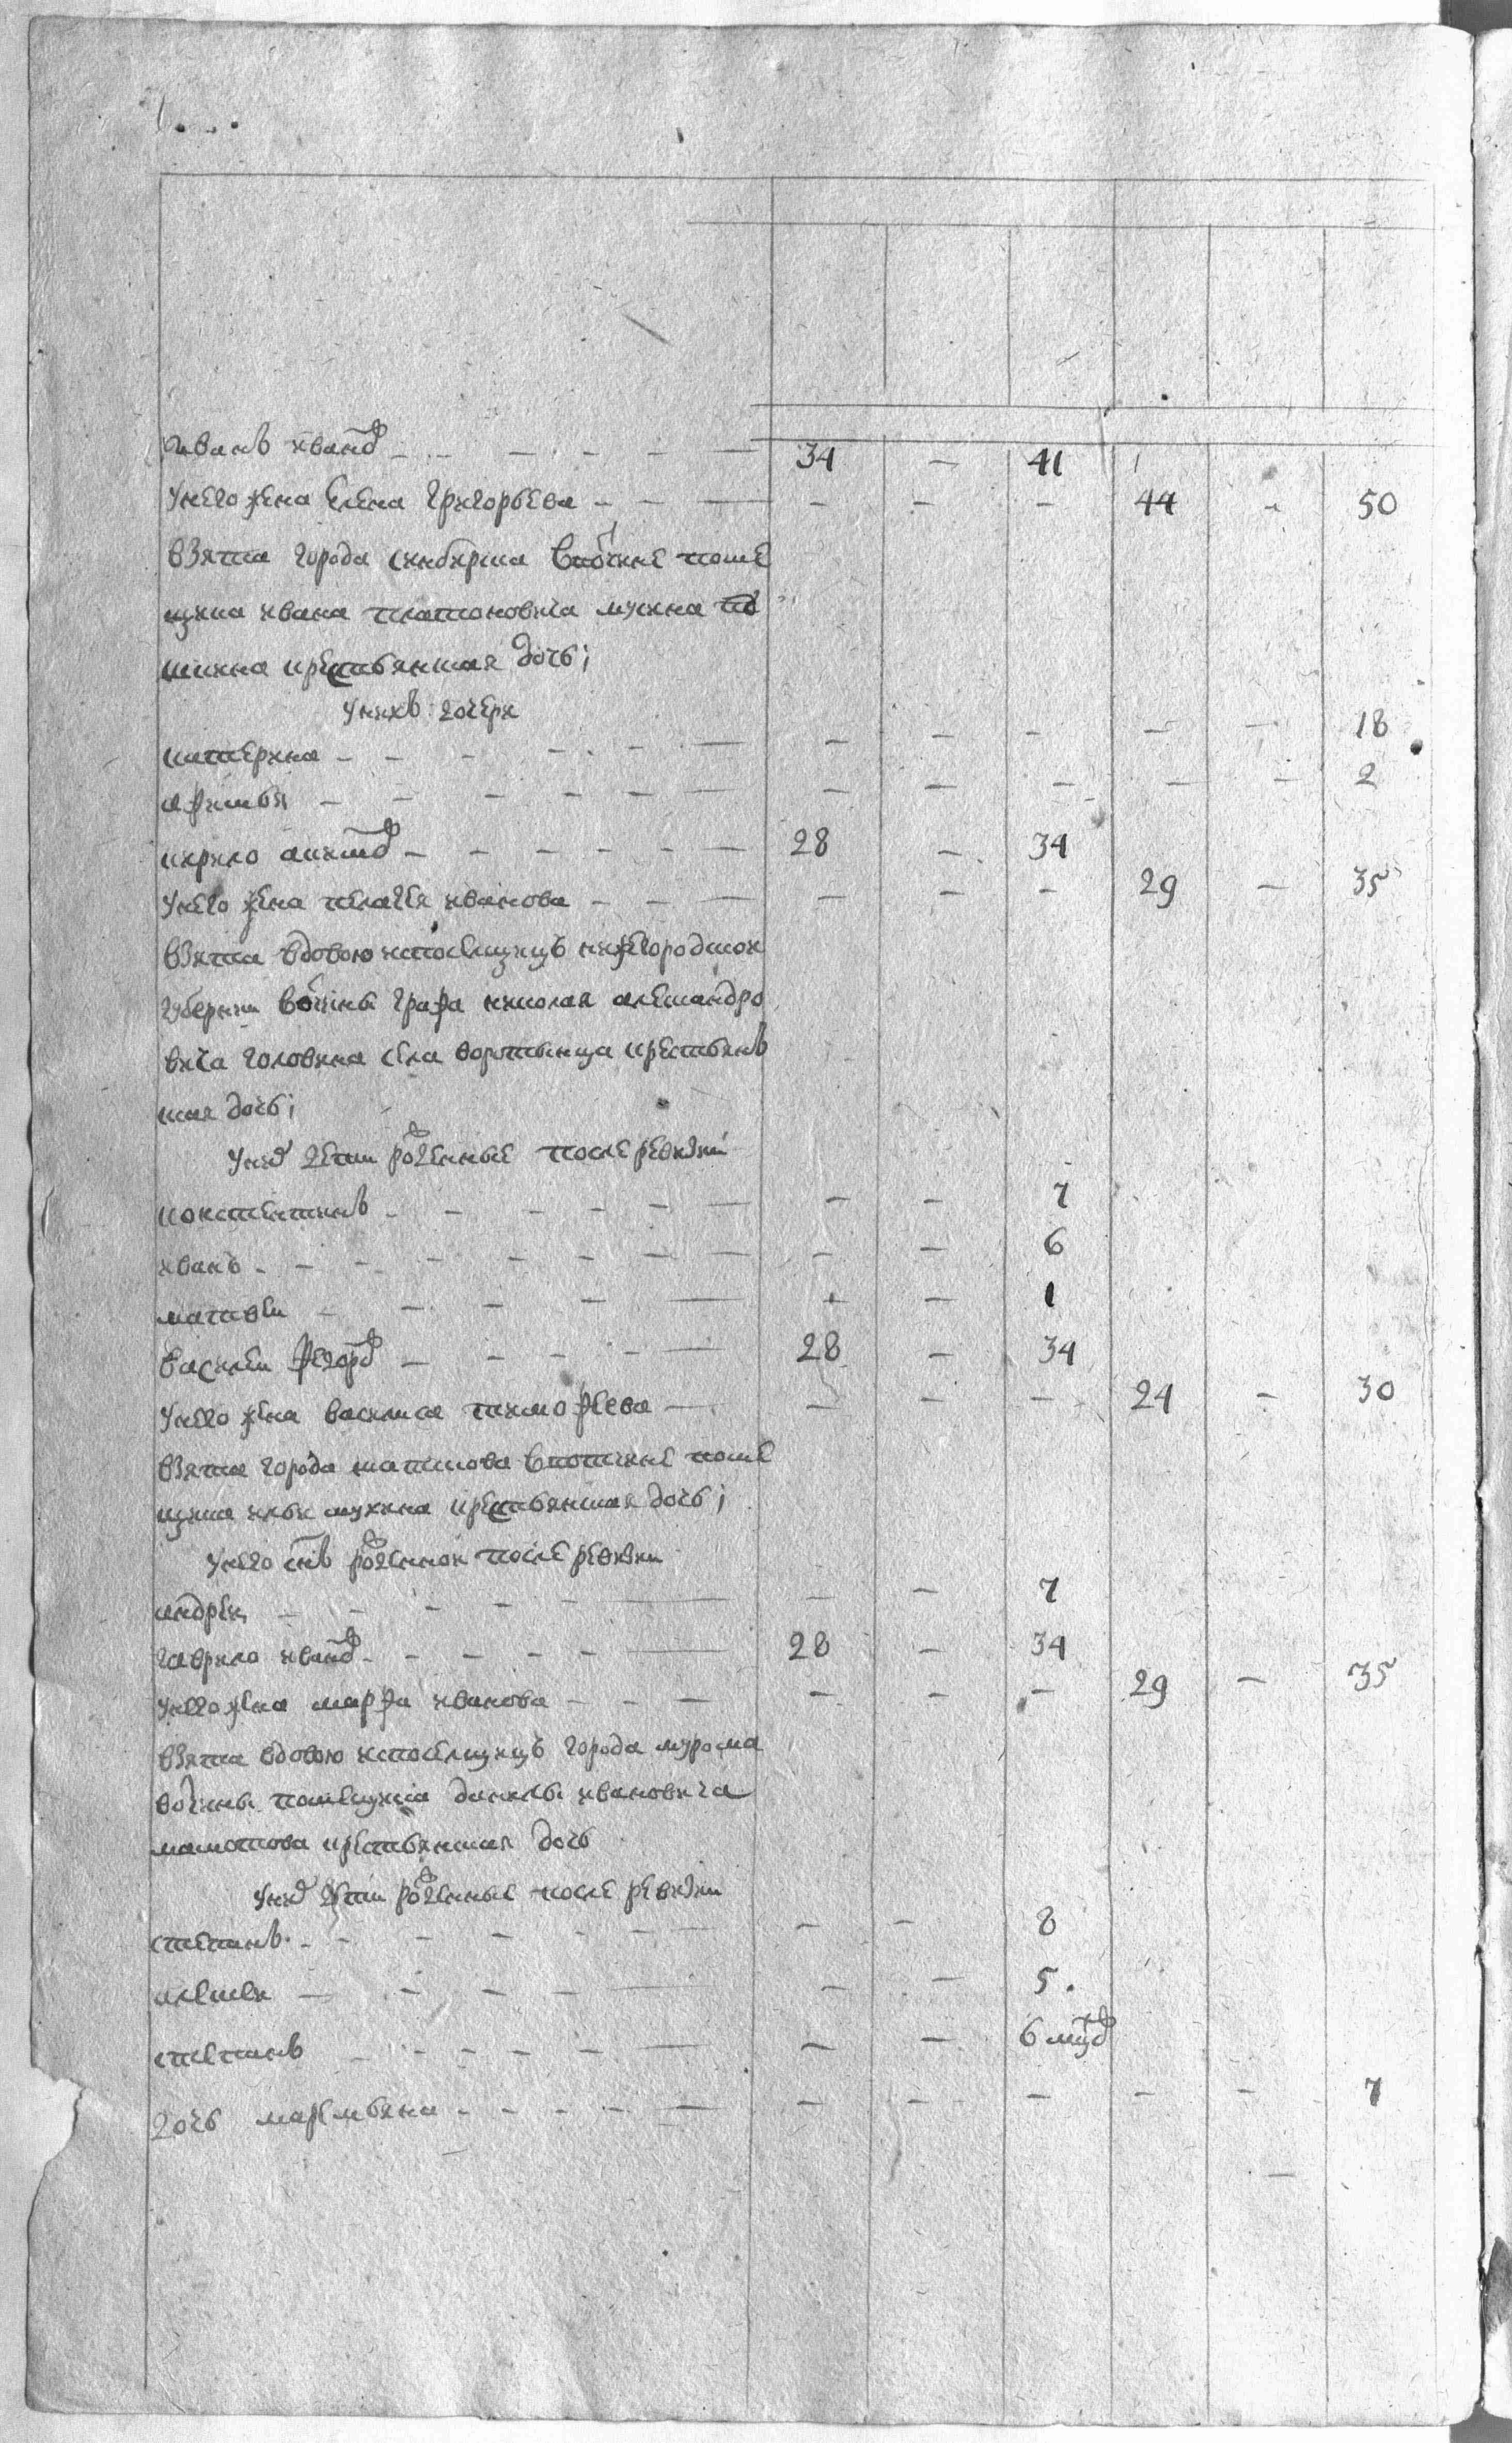 Иванъ ивановъ — — — — — 34 — 41
унего жена Елена григорьева — — — — — — 44 — 50
взята города синбирска вотчине поме
щика ивана платоновича мусина пу
шкина крестьянская дочь;
унихъ дочери
катерина — — — — — — — — — — 18
афимья — — — — — — — — — — 2
кирило акимовъ — — — — — — 28 — 34
унего жена пелагея иванова — — — — — — 29 — 35
взята вдовою испоселищицъ нижегородской
губернии вотчины графа николая александро
вича головина села воротынца крестьянъ
ская дочь;
унихъ дети рожденные после ревизии
констентинъ — — — — — — — 7
иванъ — — — — — — — — 6
матвеи — — — — — — 1
василеи федоровъ — — — — — 28 — 34
унего жена василиса тимофеева — — — — 24 — 30
взята города вотчине поме
щика ильи мухина крестьянская дочь;
унего сынъ рожденной после ревизии
андреи — — — — — — — 7
гаврило ивановъ — — — — — 28 — 34
унего жена марфа иванова — — — — — — 29 — 35
взята вдовою испоселищицъ города мурома
вотчины помещика данилы ивановича
крестьянская дочь
унихъ дети рожденные после ревизии
степанъ — — — — — — — — 8
алексеи — — — — — — — 5
степанъ — — — — — — — 6 мцовъ
дочь маремьяна — — — — — — — — — — 7